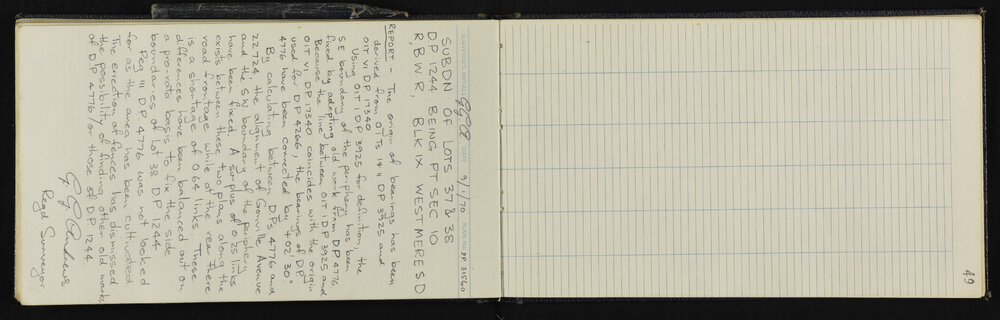 SURVEYORS INITIALS GGA DATE 9/1/70 PLAN No. DP 31560
SUBDN OF LOTS 37 & 38
DP 1244 BEING PT SEC 10
R.B.W.R, BLK IX WESTMERE S D
REPORT – The origin of bearings has been
derived from OITs 14 II DP 3925 and
OIT VI DP 17340
Using OIT I DP 3925 for definition, the
S E boundary of the periphery has been
fixed by adopting old work from DP 4776
Because the line between OIT I DP 3925 and
OIT VI DP 17340 coincides with the origin
used for DP 4266, the bearings of DP
4776 have been corrected by +02' 30"
By calculating between DPs 4776 and
22724, the alignment of Gonville Avenue
and the SW boundary of the periphery
have been fixed A surplus of 0.25 links
exists between these two plans along the
road frontage while at the rear there
is a shortage of 0.64 links. These
differences have been balanced out on
a pro-rata basis to fix the side
boundaries of Lot 38 DP 1244
Peg III DP 4776 was not looked
for as the area has been cultivated
The erection of fences has dismissed
the possibility of finding other old marks
of DP 4776/or those of DP 1244
G G Andrews
Regd Surveyor
49